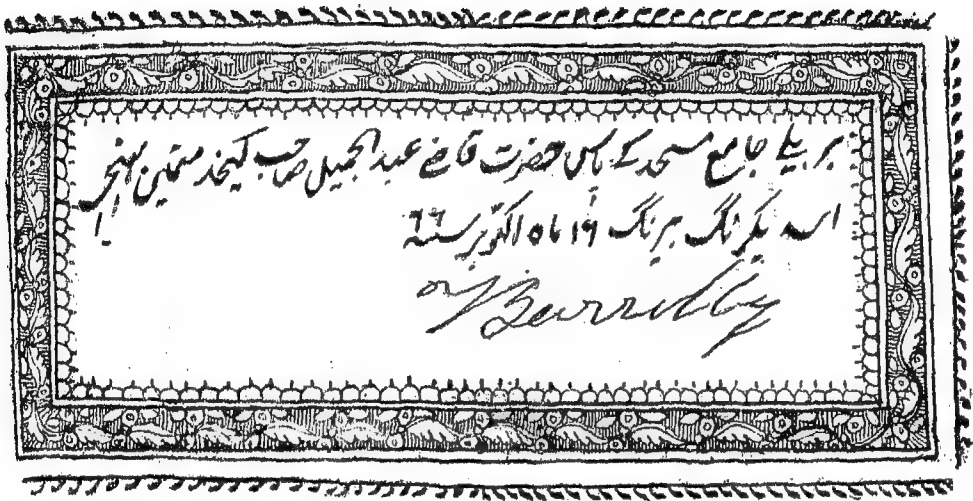 بریلی جامع مسجد کے پاس حضرت قاضے عبد الجمیل صاحب کیخدمتمین پہنچے
اسد یکرنگ بیرنگ ۱۶ ماہ اکتوبر سنہ ۶۶